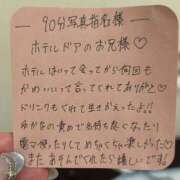 90分写真指名様
ホテルドアのお兄様♡
ホテルはいって会ってから何回も
かわいいって言ってくれてありがと♡
ドリンクもくれて生きかえった!!
ゆかなの責めで気持ち良くなったり
電マ使ったりしてめちゃくちゃ楽しかった♡
またあそんでくれたら嬉しいです